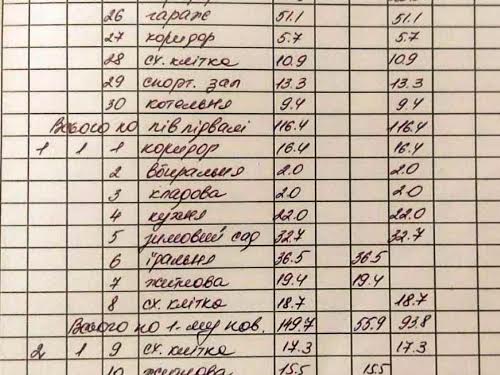 26 гараж 51.1 51.1
27 коридор 5.7 5.7
28 сх. клітка 10.9 10.9
29 спорт. зал 13.3 13.3
30 котельня 9.4 9.4
Всього по пів підвалі 116.4 116.4
1 1 1 коридор 16.4 16.4
2 вбиральня 2.0 2.0
3 кладова 2.0 2.0
4 кухня 22.0 22.0
5 зимовий сад 32.7 32.7
6 їдальня 36.5 36.5
7 житлова 19.4 19.4
8 сх. клітка 18.7 18.7
Всього по 1-му пов. 149.7 55.9 93.8
2 1 9 сх. клітка 17.3 17.3
10 житлова 15.5 15.5